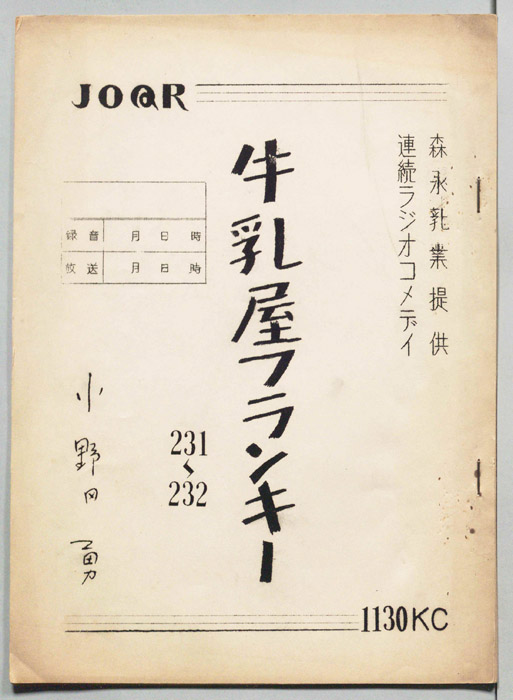 JOQR
森永乳業提供
連続ラジオコメディ
牛乳屋フランキー
録音 月 日 時
放送 月 日 時
231
〜
232
小野田 勇
1130KC